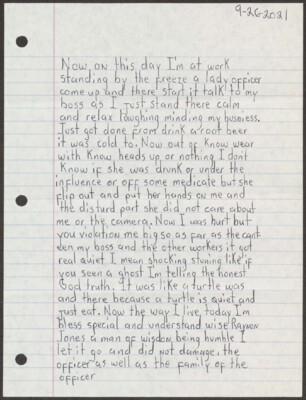 9-26-2021
Now on this day I'm at work
standing by the freeze a lady officer
come up and there start it talk to my
boss as I just stand there calm
and relax laughing minding my business.
Just got done from drink a root beer
it was cold to. Now out of know wear
with know heads up or nothing I dont
know if she was drunk or under the
influence or off some medicate but she
flip out and put her hands on me and
the disturd part she did not care about
me or the camera. Now I was hurt but
you violation me big so as far as the cant
een my boss and the other workers it got
real quiet I mean shocking stuning like if
you seen a ghost I'm telling the honest
God truth. It was like a turtle was
and there because a turtle is quiet and
just eat. Now the way I live today Im
bless special and understand wise Raymon
Jones a man of wisdom being humble I
let it go and did not damage, the
officer as well as the family of the
officer